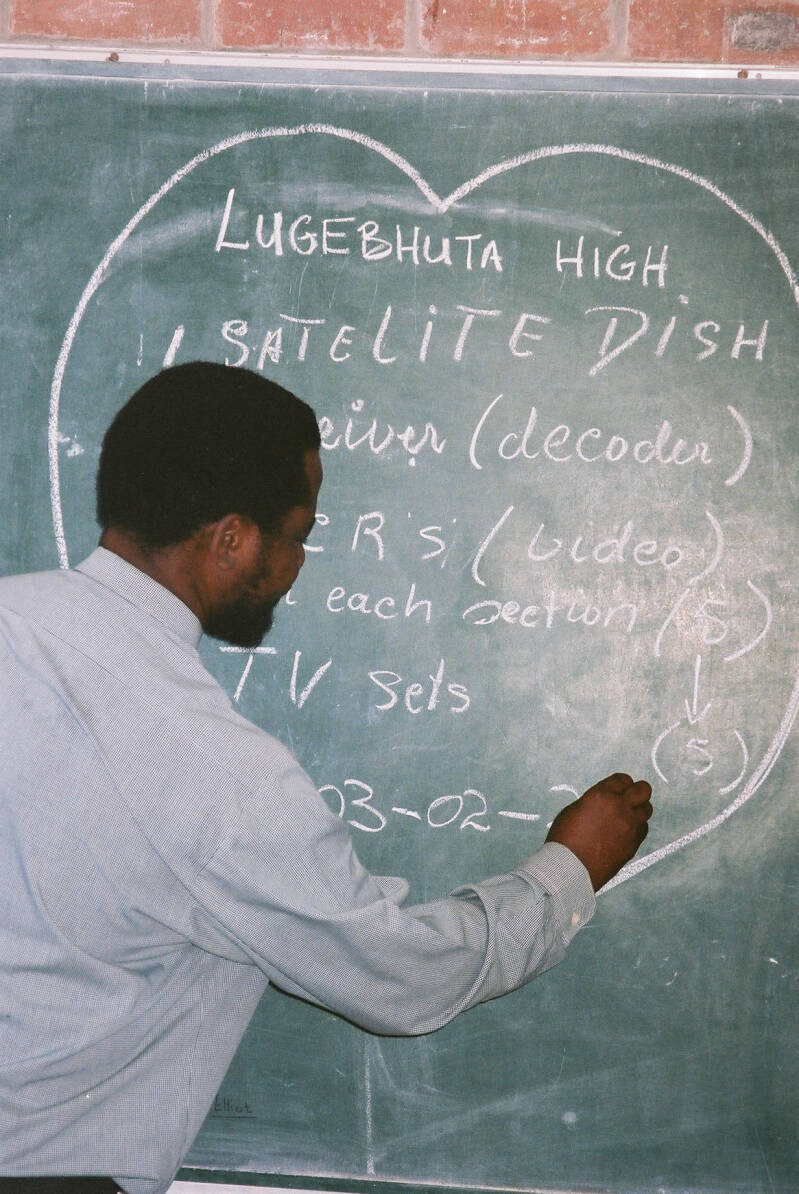 LUGEBHUTA HIGH
SATELITE DISH
eiver (decoder)
R's (video)
each section (5)
TV sets
(5)
03-02-2
Elliot